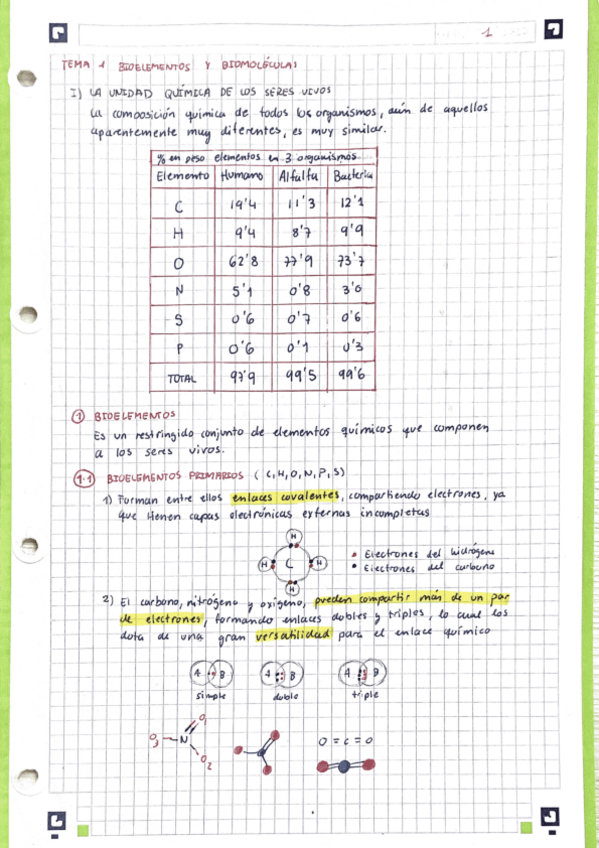 1
TEMA 1 BIOELEMENTOS Y BIOMOLÉCULAS
I) LA UNIDAD QUÍMICA DE LOS SERES VIVOS
La composición química de todos los organismos, aún de aquellos
aparentemente muy diferentes, es muy similar.
% en peso elementos en 3 organismos
Elemento Humano Alfalfa Bacteria
C 19'4 11'3 12'1
H 9'4 8'7 9'9
O 62'8 77'9 73'7
N 5'1 0'8 3'0
S 0'6 0'7 0'6
P 0'6 0'1 0'3
TOTAL 97'9 99'5 99'6
1 BIOELEMENTOS
Es un restringido conjunto de elementos químicos que componen
a los seres vivos.
1.1 BIOELEMENTOS PRIMARIOS (C,H,O,N,P,S)
1) Forman entre ellos enlaces covalentes, compartiendo electrones, ya
que tienen capas electrónicas externas incompletas
H
H C H
H
• Electrones del hidrógeno
• Electrones del carbono
2) El carbono, nitrógeno y oxígeno, pueden compartir más de un par
de electrones, formando enlaces dobles y triples, lo cual los
dota de una gran versatilidad para el enlace químico
A B A B A B
simple doble triple
O1
O3 N
O2
O = C = O